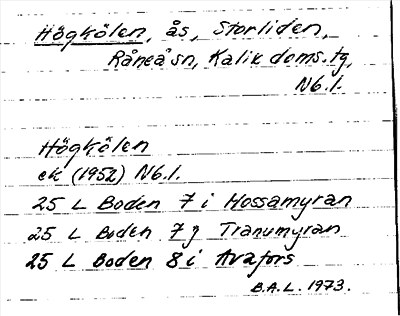 Högkölen, ås, Storliden,
Råneå sn, Kalix doms.tg,
Nb.l.
Högkölen
ek (1952) Nb.l.
25 L Boden 7 i Mossamyran
25 L Boden 7 j Tranumyran
25 L Boden 8 i Avafors
B.A.L. 1973.